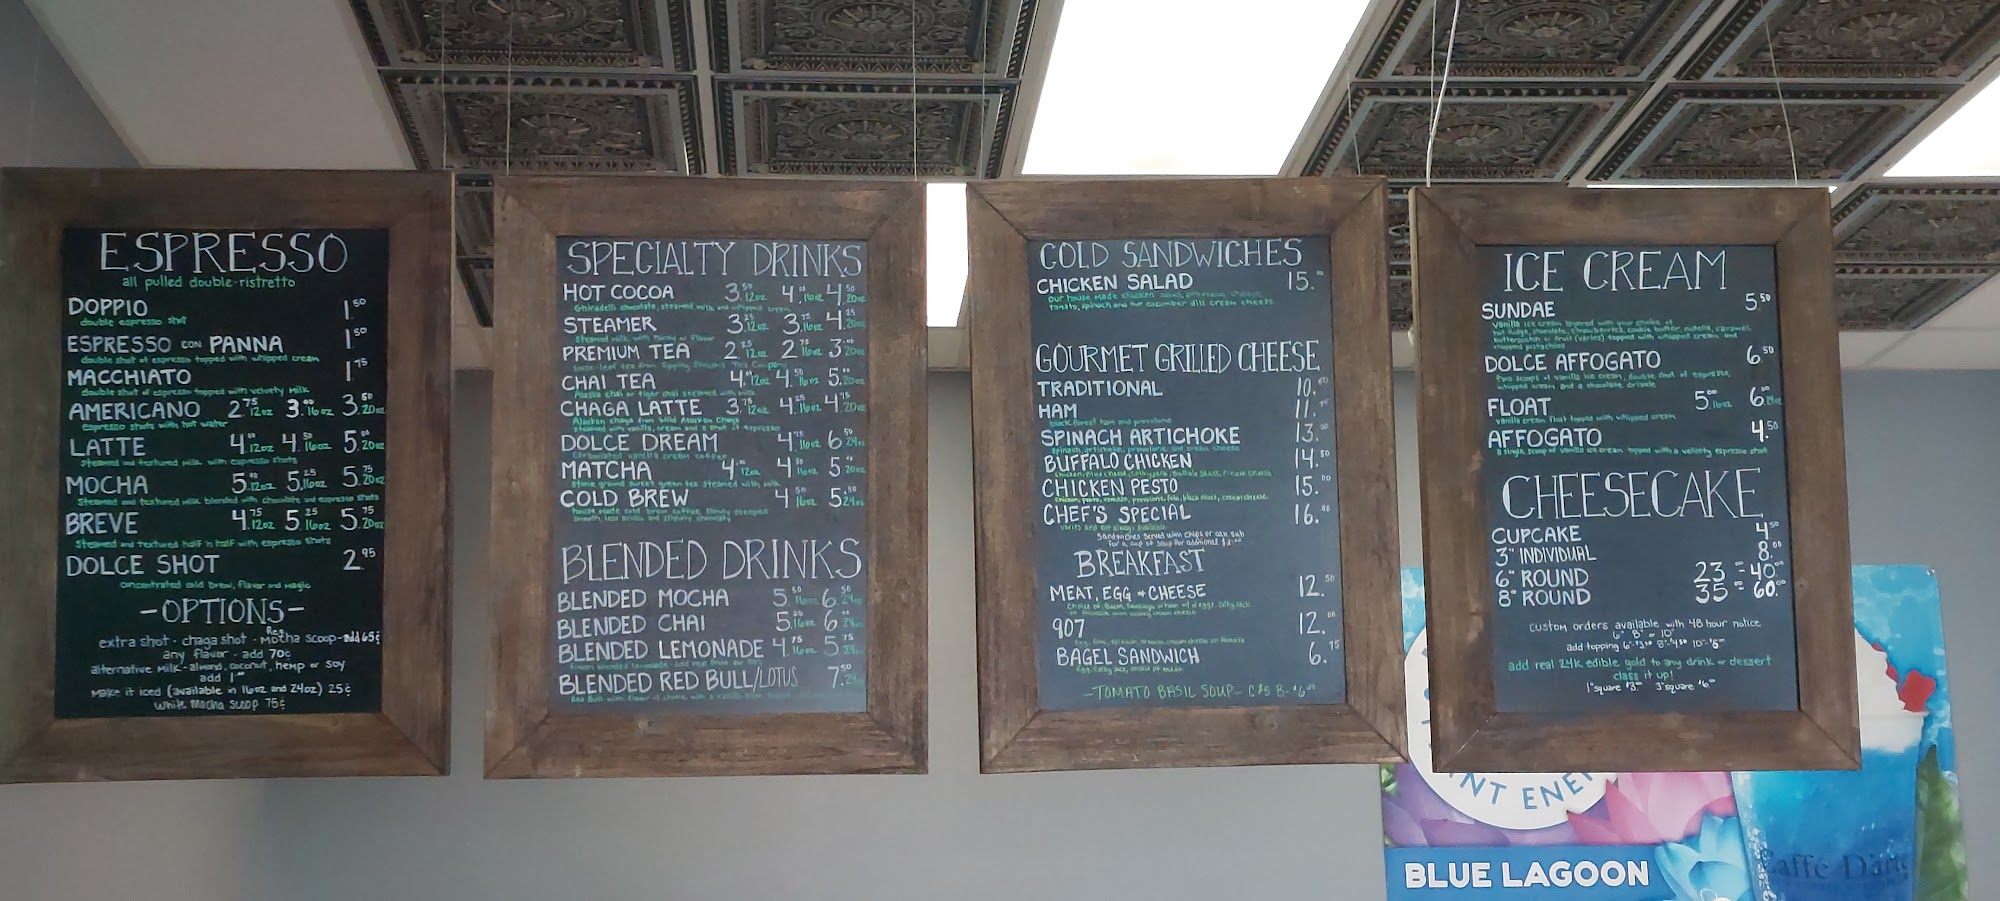 ESPRESSO
all pulled double-ristretto
DOPPIO 1.50
double espresso shot
ESPRESSO CON PANNA 1.50
double shot of espresso topped with whipped cream
MACCHIATO 1.75
double shot of espresso topped with velvety milk
AMERICANO 2.75 12oz 3.00 16oz 3.50 20oz
espresso shots with hot water
LATTE 4.00 12oz 4.50 16oz 5.00 20oz
steamed and textured milk with espresso shots
MOCHA 5.00 12oz 5.25 16oz 5.75 20oz
Steamed and textured milk blended with chocolate and espresso shots
BREVE 4.75 12oz 5.25 16oz 5.75 20oz
Steamed and textured half n half with espresso shots
DOLCE SHOT 2.95
concentrated cold brew, flavor and magic
-OPTIONS-
extra shot · chaga shot · Red Mocha scoop-add 65¢
any flavor · add 70¢
alternative milk-almond, coconut, hemp or soy
add 1.00
Make it iced (available in 16oz and 24oz) 25¢
White Mocha scoop 75¢
SPECIALTY DRINKS
HOT COCOA 3.50 12oz 4.00 16oz 4.50 20oz
Ghiradelli chocolate, steamed milk and whipped cream
STEAMER 3.25 12oz 3.75 16oz 4.25 20oz
Steamed milk with flavor
PREMIUM TEA 2.25 12oz 2.75 16oz 3.00 20oz
loose-leaf tea from
CHAI TEA 4.00 12oz 4.50 16oz 5.00 20oz
Alaska chai or tiger chai steamed with milk
CHAGA LATTE 3.75 12oz 4.25 16oz 4.75 20oz
Alaskan chaga from Wild Alaskan Chaga
steamed with vanilla, cream and a shot of espresso
DOLCE DREAM 4.75 16oz 6.50 24oz
Carbonated vanilla cream coffee
MATCHA 4.00 12oz 4.50 16oz 5.00 20oz
Stone ground sweet green tea steamed with milk
COLD BREW 4.50 16oz 5.50 24oz
house made cold brew coffee, slowly steeped
smooth, less acidic and slightly chocolaty
BLENDED DRINKS
BLENDED MOCHA 5.50 16oz 6.50 24oz
BLENDED CHAI 5.25 16oz 6.00 24oz
BLENDED LEMONADE 4.75 16oz 5.75 24oz
BLENDED RED BULL/LOTUS 7.50 24oz
COLD SANDWICHES
CHICKEN SALAD 15.00
our house made chicken salad, provolone cheese,
tomato, spinach and our cucumber dill cream cheese
GOURMET GRILLED CHEESE
TRADITIONAL 10.
HAM 11.
black forest ham and provolone
SPINACH ARTICHOKE 13.
Spinach, artichoke, provolone, and cream cheese
BUFFALO CHICKEN 14.50
Chicken, blue cheese, colby jack, buffalo sauce, cream cheese
CHICKEN PESTO 15.00
chicken, pesto, tomato, provolone, feta, black olives, cream cheese
CHEF'S SPECIAL 16.00
varies and not always available
Sandwiches served with chips or can sub
for a cup of soup for additional
BREAKFAST
MEAT, EGG + CHEESE 12.50
907 12.
BAGEL SANDWICH 6.75
-TOMATO BASIL SOUP- C $5 B- $6
ICE CREAM
SUNDAE 5.50
vanilla ice cream layered with your choice of
hot fudge, chocolate, strawberries, cookie butter, nutella, caramel,
butterscotch or fruit (varies) topped with whipped cream and
chopped pistachios
DOLCE AFFOGATO 6.50
two scoops of vanilla ice cream, double shot of espresso,
whipped cream and a chocolate drizzle
FLOAT 5.00 16oz 6.00 24oz
vanilla cream float topped with whipped cream
AFFOGATO 4.50
a single scoop of vanilla ice cream topped with a velvety espresso shot
CHEESECAKE
CUPCAKE 4.50
3" INDIVIDUAL 8.00
6" ROUND 23 - 40.00
8" ROUND 35 - 60.00
custom orders available with 48 hour notice
6" 8" or 10"
add topping
add real 24K edible gold to any drink or dessert
class it up!
1" square $3.00 3" square $6.00
BLUE LAGOON
Caffe D'arte